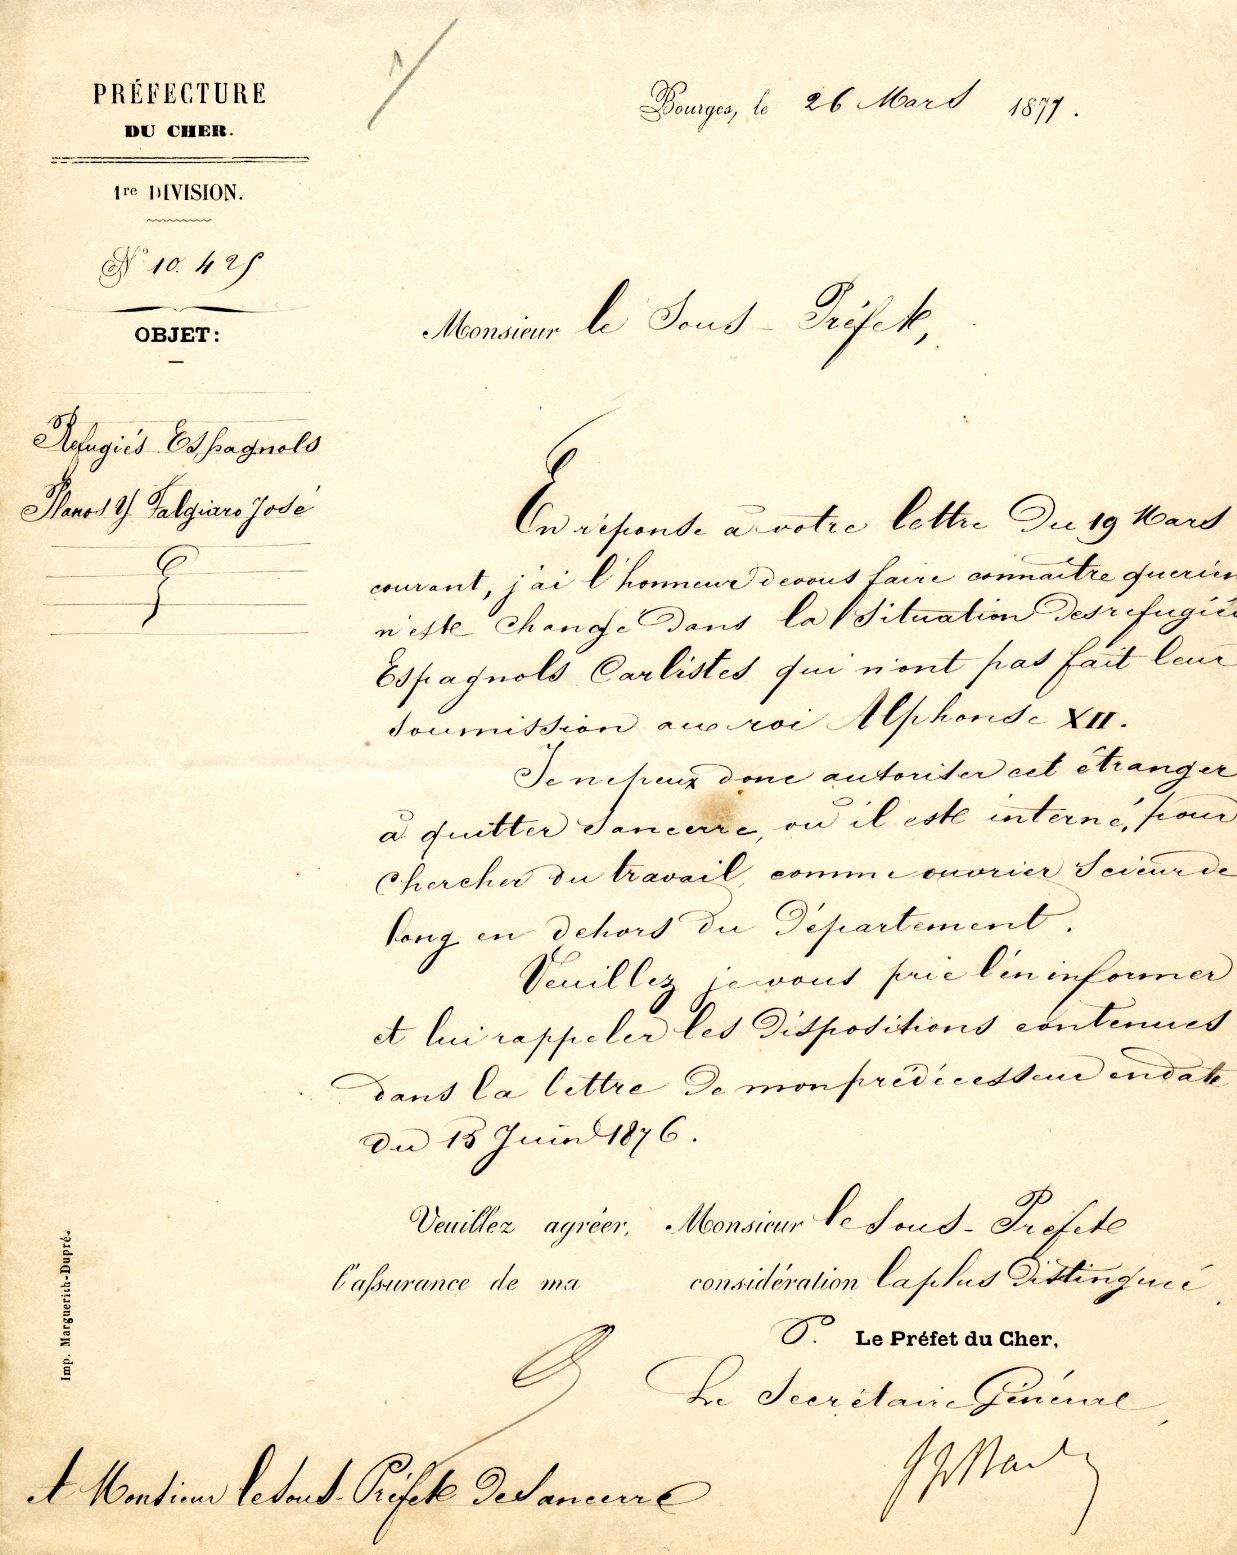 PRÉFECTURE
DU CHER.
1re DIVISION.
N° 10.425
OBJET:
Refugiés Espagnols
Planos y Falguiaro José
Bourges, le 26 Mars 1877.
Monsieur le Sous-Préfet,
En réponse à votre lettre du 19 Mars
courant, j'ai l'honneur de vous faire connaître que rien
n'est changé dans la situation des refugiés
Espagnols Carlistes qui n'ont pas fait leur
soumission au roi Alphonse XII.
Je ne peux donc autoriser cet étranger
à quitter Sancerre, où il est interné, pour
chercher du travail, comme ouvrier scieur de
long en dehors du Département.
Veuillez je vous prie l'en informer
et lui rappeler les dispositions contenues
dans la lettre de mon prédécesseur en date
du 15 Juin 1876.
Veuillez agréer, Monsieur le Sous-Préfet
l'assurance de ma considération la plus distinguée
P. Le Préfet du Cher,
Le Secrétaire Général,
A Monsieur le Sous-Préfet de Sancerre
Imp. Marguerith-Dupré.